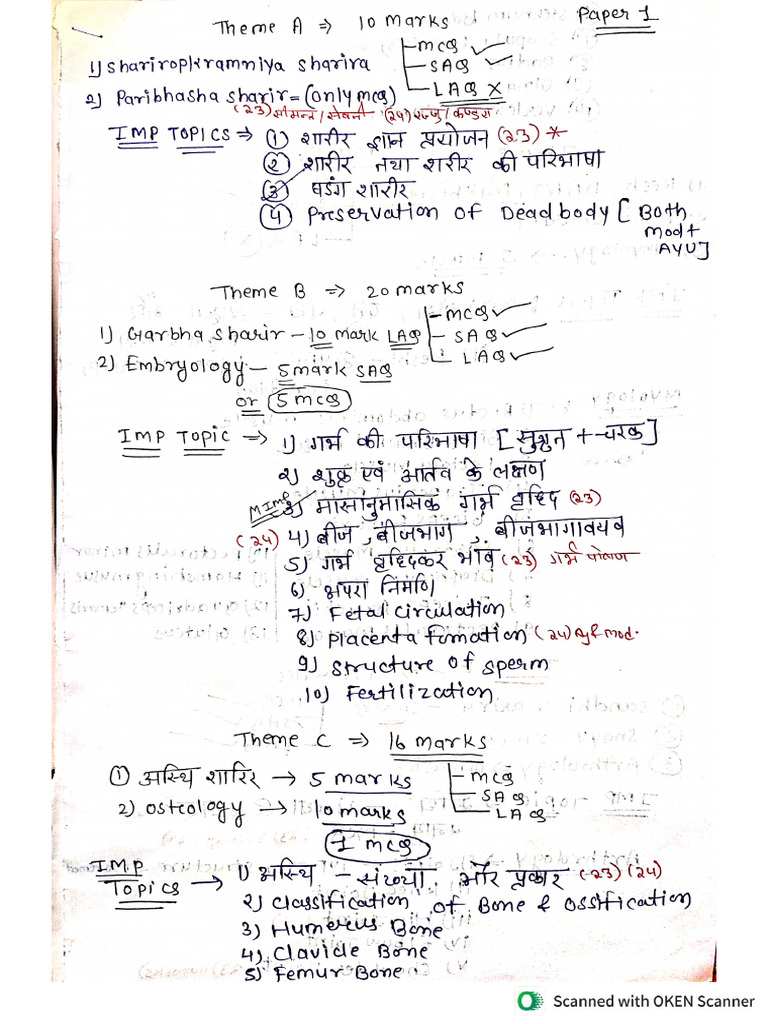 Theme A ⇒ 10 Marks Paper 1
MCQ ✓
1) Shariropkramniya Sharira SAQ ✓
2) Paribhasha Sharir = (only MCQ) LAQ X
(23) सीमन्त / सेवनी (24) रज्जु / कण्डरा
IMP TOPICS ⇒ ① शारीर ज्ञान प्रयोजन (23) *
② शारीर तथा शरीर की परिभाषा
③ षडंग शारीर
④ Preservation of Dead body [Both
mod+
AYU]
Theme B ⇒ 20 marks
MCQ ✓
1) Garbha Sharir – 10 Mark LAQ SAQ ✓
LAQ ✓
2) Embryology – 5 mark SAQ
or 5 MCQ
IMP TOPIC ⇒ 1) गर्भ की परिभाषा [सुश्रुत + चरक]
2) शुक्र एवं आर्तव के लक्षण
M IMP 3) मासानुमासिक गर्भ वृद्दि (23)
(24) 4) बीज, बीजभाग, बीजभागावयव
5) गर्भ वृद्दिकर भाव (23) गर्भ पोषण
6) अपरा निर्माण
7) Fetal Circulation
8) Placenta Fomation (24) Ay & Mod.
9) Structure of Sperm
10) Fertilization
Theme C ⇒ 16 marks
① अस्थि शारिर → 5 marks MCQ
SAQ
2) Osteology → 10 marks LAQ
1 MCQ
IMP
Topics → 1) अस्थि – संख्या और प्रकार (23) (24)
2) Classification of Bone & Ossification
3) Humerus Bone
4) Clavicle Bone
5) Femur Bone
Scanned with OKEN Scanner